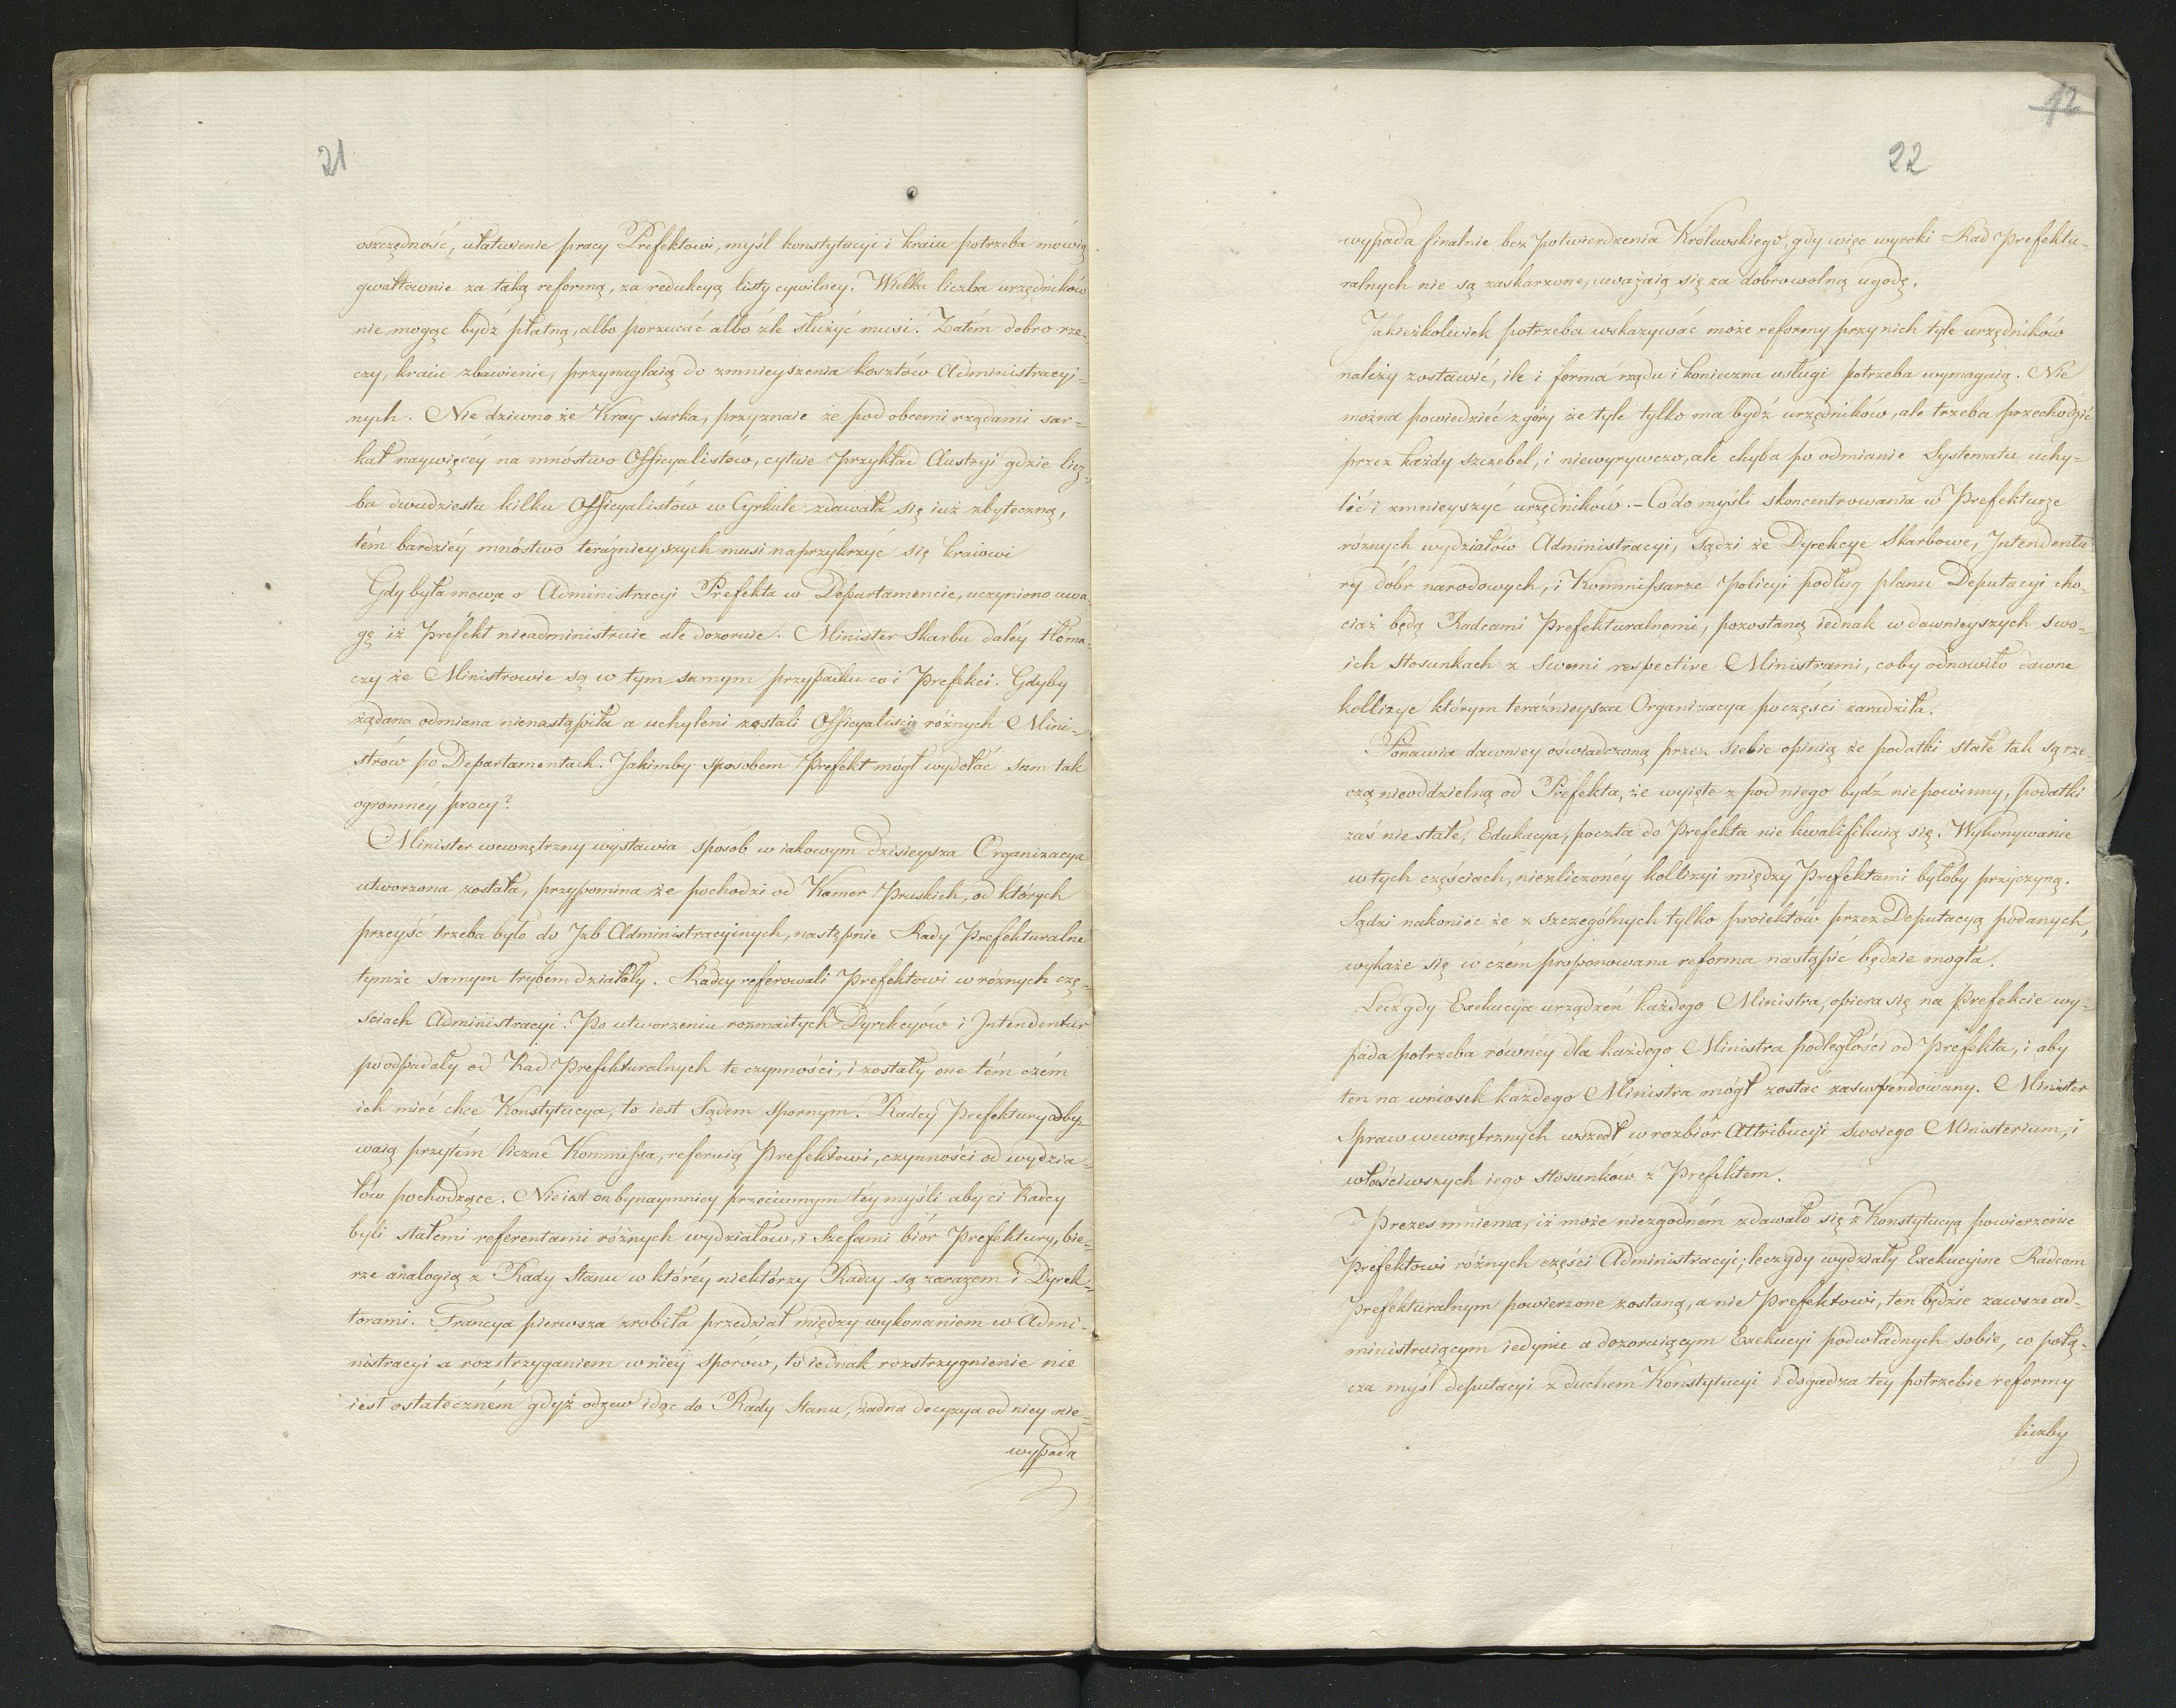 21
oszczędność, ułatwienie pracy Prefektowi, myśl konstytucyi i kraiu potrzeba mówią
gwałtownie za taką reformą, za redukcyą listy cywilney. Wielka liczba urzędników
nie mogąc bydź płatną, albo porzucać albo źle służyć musi. Zatém dobro rze-
czy, kraiu zbawienie, przynaglaią do zmnieyszenia kosztów Administracyi-
nych. Nie dziwno że Kray sarka, przyznaie że pod obcemi rządami sar=
kał naywięcéy na mnóstwo Officyalistów, cytuie przykład Austryi gdzie licz-
ba dwudziestu kilku Officyalistów w Cyrkule zdawała się iuż zbyteczną,
tém bardziéy mnóstwo teraźnieyszych musi naprzykrzyć się kraiowi
Gdy była mowa o Administracyi Prefekta w Departamencie, uczyniono uwa-
gę iż Prefekt nieadministruie ale dozoruie. Minister Skarbu daléy tłoma-
czy że Ministrowie są w tym samym przypadku co i Prefekci. Gdyby
żądana odmiana nienastąpiła a uchyleni zostali Officyaliści różnych Mini-
strów po Departamentach. Jakimby sposobem Prefekt mógł wydołać sam tak
ogromnéy pracy?
Minister wewnętrzny wystawia sposob w iakowym dzisieysza Organizacya
utworzona została, przypomina że pochodzi od Kamer Pruskich, od których
przeyść trzeba było do Izb Administracyinych, następnie Rady Prefekturalne
tymże samym trybem działały. Radcy referowali Prefektowi w różnych czę-
ściach Administracyi. Po utworzeniu rozmaitych Dyrekcyów i Intendentur
poodpadały od Rad Prefekturalnych te czynności, i zostały one tém czém
ich mieć chce Konstytucya, to iest Sądem spornym. Radcy Prefektury odby-
waią przytém liczne Kommissa, referuią Prefektowi, czynności od wydzia-
łów pochodzące. Nie iest on bynaymniey przeciwnym téy myśli aby ci Radcy
byli stałemi referentami różnych wydziałów, i Szefami biór Prefektury, bie-
rze analogią z Rady Stanu w któréy niektórzy Radcy są zarazem i Dyrek-
torami. Francya pierwsza zrobiła przedział między wykonaniem w Admi-
nistracyi a rozstrzyganiem w niéy sporów, to iednak rozstrzygnienie nie
iest ostateczném gdyż odzew idąc do Rady Stanu, żadna decyzya od niey nie=
wypada
12
22
wypada finalnie bez potwierdzenia Królewskiego, gdy więc wyroki Rad Prefektu-
ralnych nie są zaskarżone, uważaią się za dobrowolną ugodę.
Jakieżkolwiek potrzeba wskazywać może reformy przy nich tyle urzędników
należy zostawić, ile i forma rządu i konieczna usługi potrzeba wymagaią. Nie
można powiedzieć z góry że tyle tylko ma bydź urzędników, ale trzeba przechodzić
przez każdy szczebel, i niewyrywczo, ale chyba po odmianie Systematu uchy-
lić i zmnieyszyć urzędników. - Co do myśli skoncentrowania w Prefekturze
różnych wydziałów Administracyi, Sądzi że Dyrekcye Skarbowe, Intendentu
ry dóbr narodowych, i Kommissarze policyi podług planu Deputacyi cho-
ciaż będą Radcami Prefekturalnemi, pozostaną iednak w dawnieyszych swo-
ich stosunkach z Swemi respective Ministrami, coby odnowiło dawne
kollizye którym teraźnieysza Organizacya poczęści zaradziła.
Ponawia dawniey oświadczoną przez siebie opinią że podatki stałe tak są rze-
czą nieoddzielną od Prefekta, że wyięte z pod niego bydź niepowinny, podatki
zaś nie stałe, Edukacya, poczta do Prefekta nie kwalifikuią się. Wykonywanie
w tych częściach, niezliczonéy kollizyi między Prefektami byłoby przyczyną.
Sądzi nakoniec że z szczególnych tylko proiektów przez Deputacyą podanych,
wykaże się w czém proponowana reforma nastąpić będzie mogła.
Lecz gdy Exekucya urządzeń każdego Ministra, opiera się na Prefekcie wy-
pada potrzeba równéy dla każdego Ministra podległości od Prefekta, i aby
ten na wniosek każdego Ministra mógł zostać zasuspendowany. Minister
Spraw wewnętrznych wszedł w rozbiór Attribucyi Swoiego Ministerium, i
właściwszych iego stosunków z Prefektem.
Prezes mniema, iż może niezgodném zdawało się z Konstytucyą powierzenie
Prefektowi różnych części Administracyi; lecz gdy wydziały Exekucyine Radcom
Prefekturalnym powierzone zostaną, a nie Prefektowi, ten będzie zawsze ad-
ministruiącym iedynie a dozoruiącym Exekucyi podwładnych sobie, co połą-
cza myśl deputacyi z duchem Konstytucyi i dogadza tey potrzebie reformy
liczby